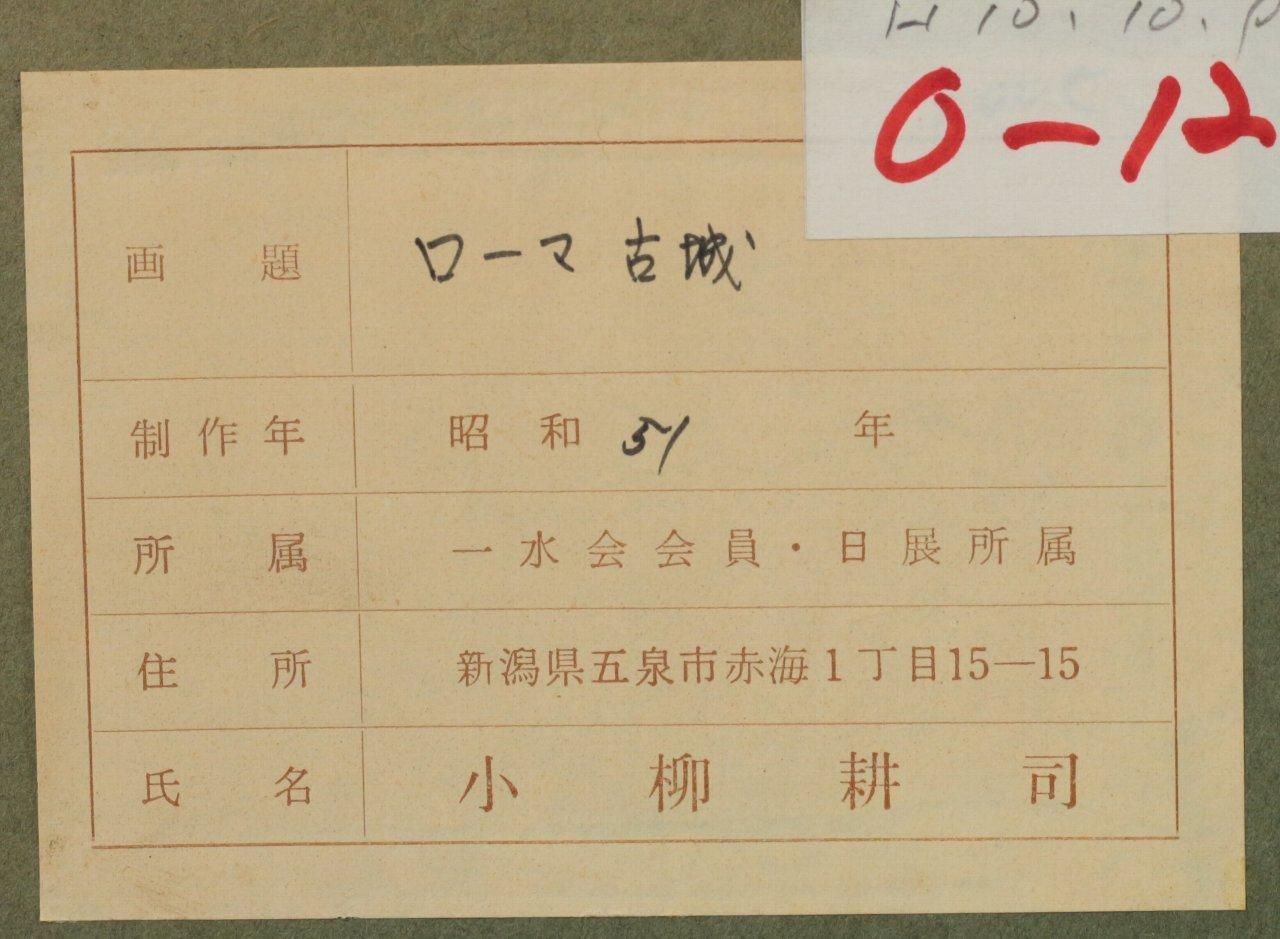 H 10. 10.
0-12
画題 ローマ 古城
制作年 昭和 51 年
所属 一水会会員・日展所属
住所 新潟県五泉市赤海1丁目15—15
氏名 小柳耕司